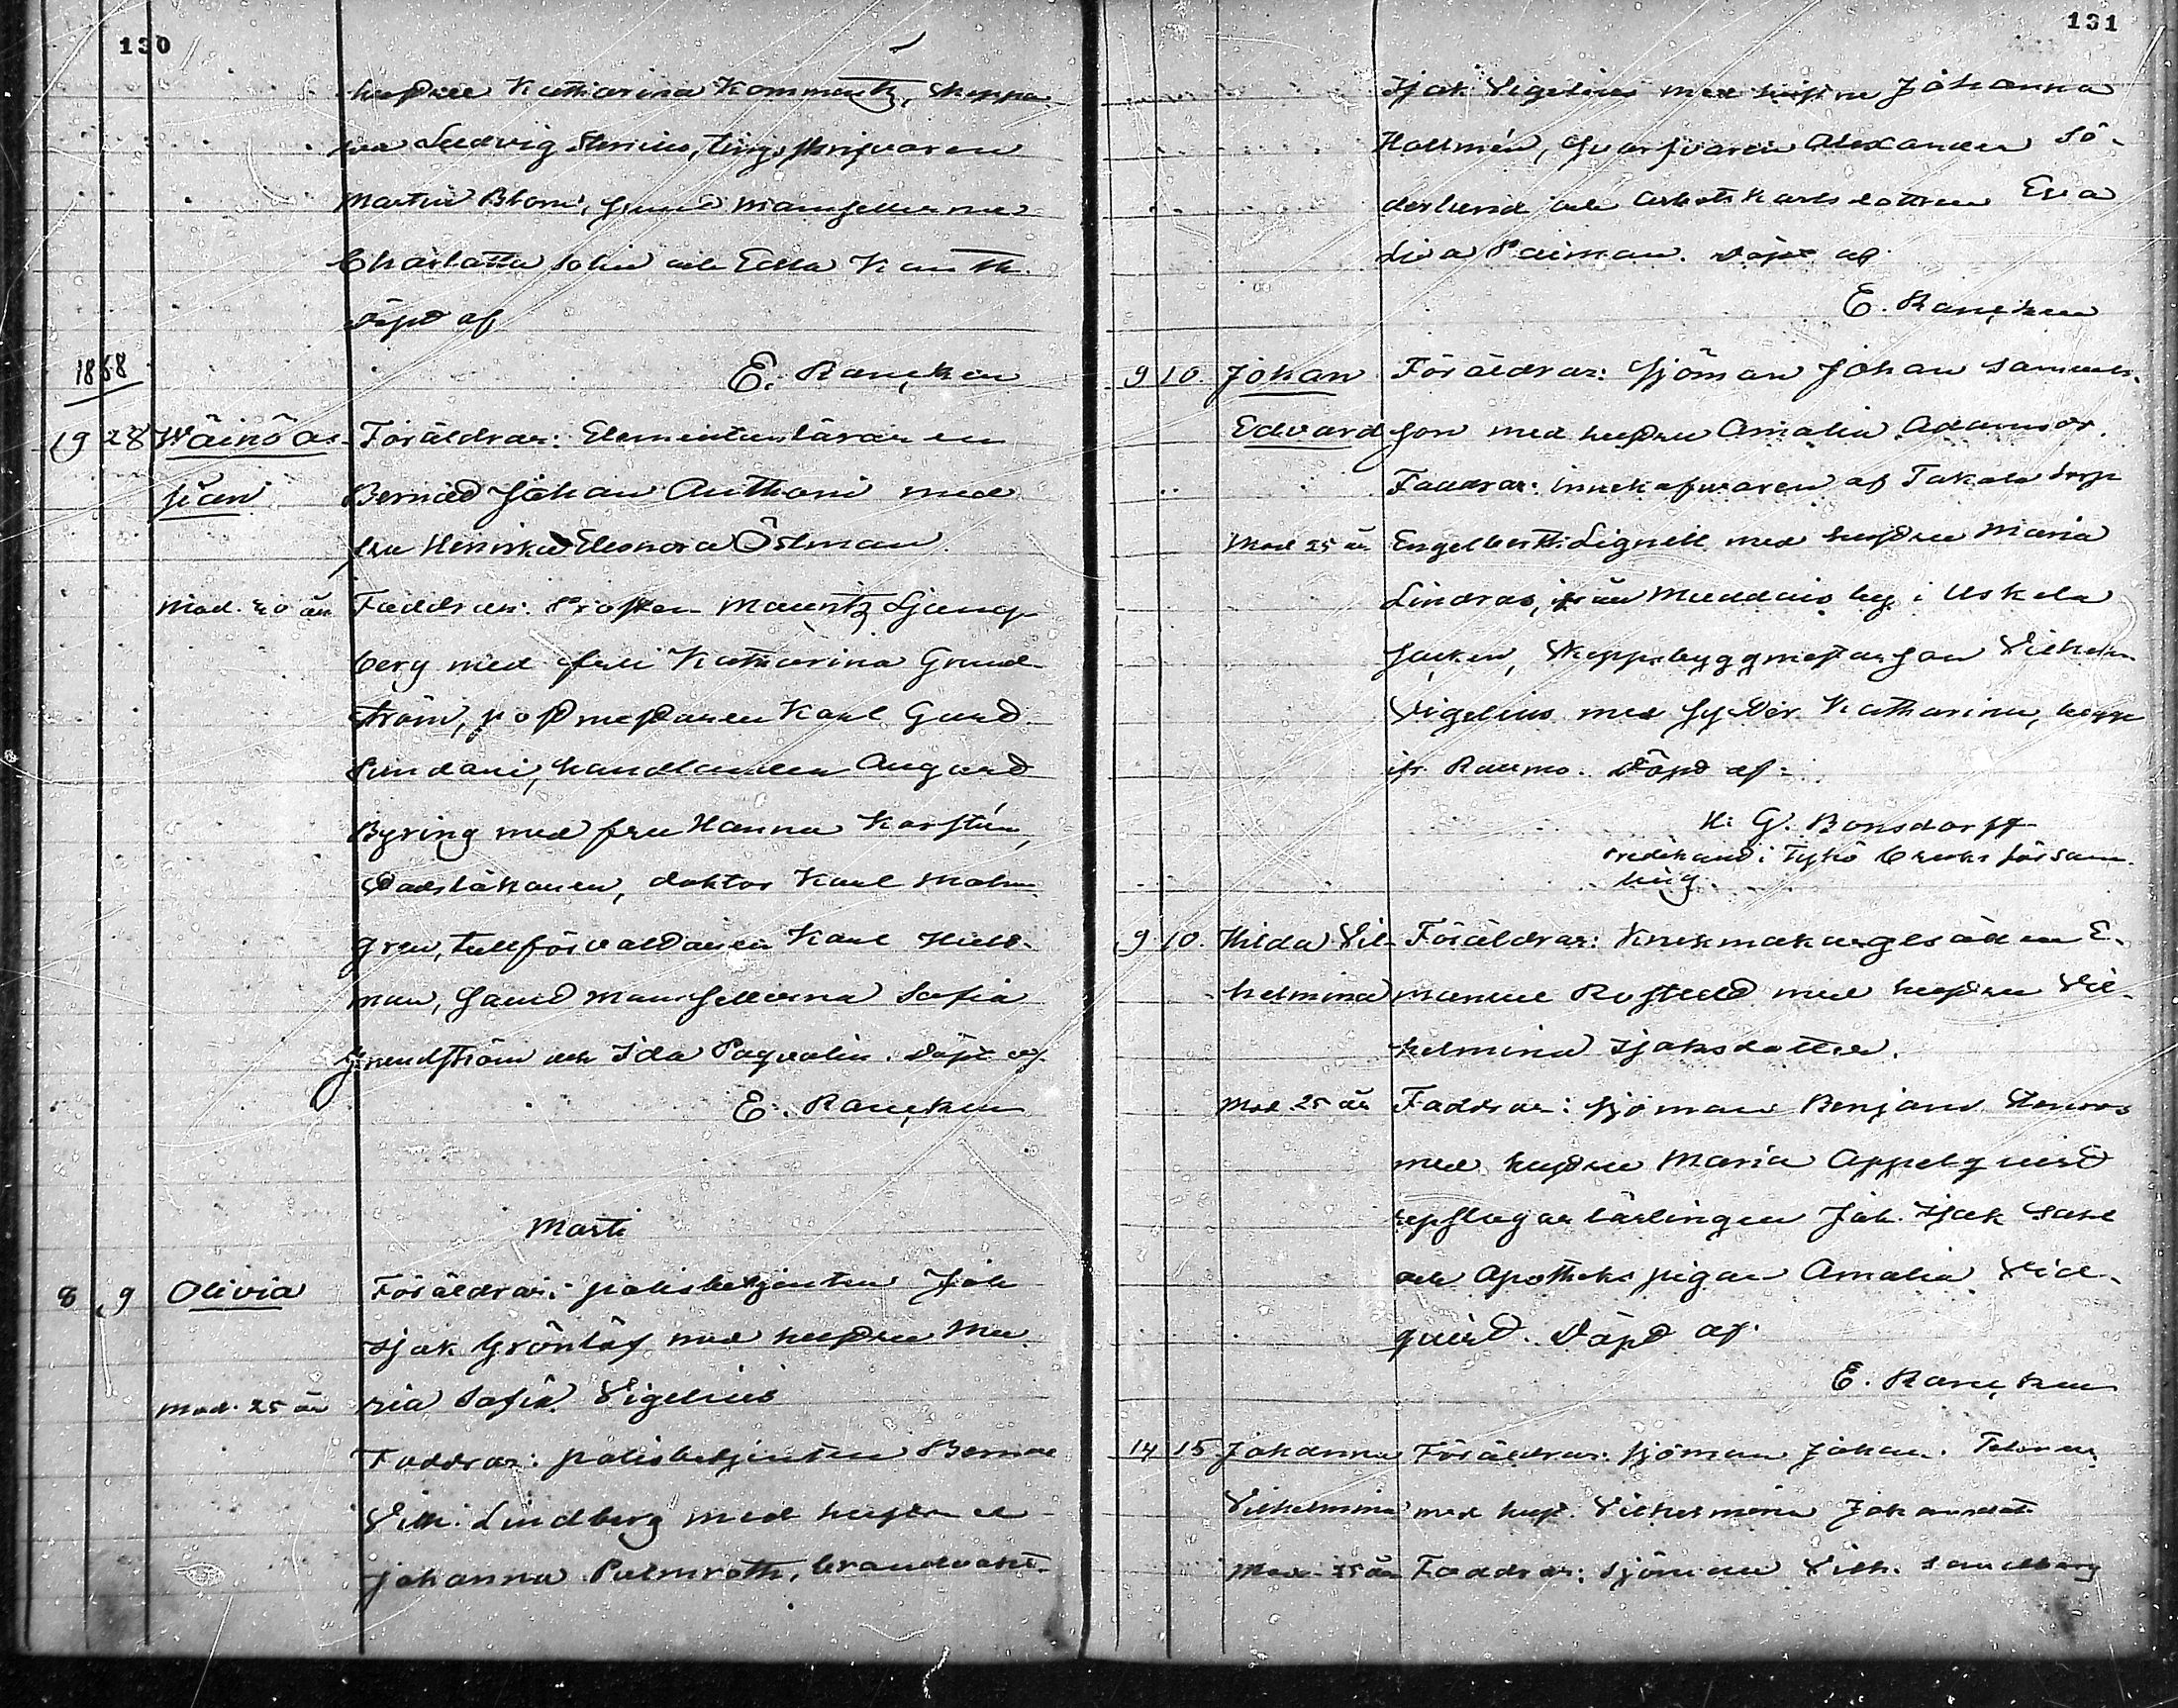 130
hustru Katharina Kommentz, skeppa-
ren Ludvig Stenius, tingsskrifvaren
Martin Blom, samt mamsellerna
Charlotta Solin och Edla Kauth.
Döpt af
E. Rancken
1868
19 28 Wäinö As- Föräldrar: Elementarläraren
sian Bernard Johan Anthoni med
fru Henrika Eleonora Östman.
Mod. 20 år Faddrar: Prosten Mauritz Ljung-
berg med fru Katharina Grund-
ström, postmästaren Karl Gust.
Sundani, handlanden August
Byring med fru Hanna Karstén,
Stadsläkaren, doktor Karl Malm-
gren, tullförvaltaren Karl
man, samt mamsellerna Sofia
Grundström och Ida Paqvalin. Döpt af
E. Rancken
Marti
8 9 Olivia Föräldrar: polisbetjenten Joh
Isak Grönlöf med hustru Ma-
Mod. 25 år ria Sofia Vigelius
Faddrar: polisbetjenten
Vilh. Lindberg med hustru
Johanna Palmroth, brandvakt-
131
Isak Vigelius med hustru Johanna
Hallmén, Garfvaren Alexander Sö-
derlund och Eva
Lisa Paiman. Döpt af
E. Rancken
9 10. Johan Föräldrar: Sjöman Johan Samuels-
Edvard son med hustru Amalia Adamsdr.
Faddrar: innehafvaren af Takala torp
Mod 25 år Engelberth Lignell med hustru Maria
Lindros, ifrån Muddais by i Uskela
socken, Skeppsbyggmästarson Vilhelm
Vigelius med syster Katharina, begge
ifr. Raumo. Döpt af
H. G. Bonsdorff
Predikant i Tykö bruks försam-
ling
9 10. Hilda Vil- Föräldrar: Snickmakaregesällen E-
helmina manuel Rostedt med hustru Vil-
helmina Isaksdotter.
Mod 25 år Faddrar: Sjöman Benjam. Stenros
med hustru Maria Appelqvist
repslagarlärlingen Joh. Isak Sahl
och Apothekspigan Amalia Vid-
qvist. Döpt af
E. Rancken
14 15 Johanna Föräldrar: Sjöman Johan
Vilhelmina med hust. Vilhelmina Johansdotr
Mod. 25 år Faddrar: Sjöman Vilh. Sandberg